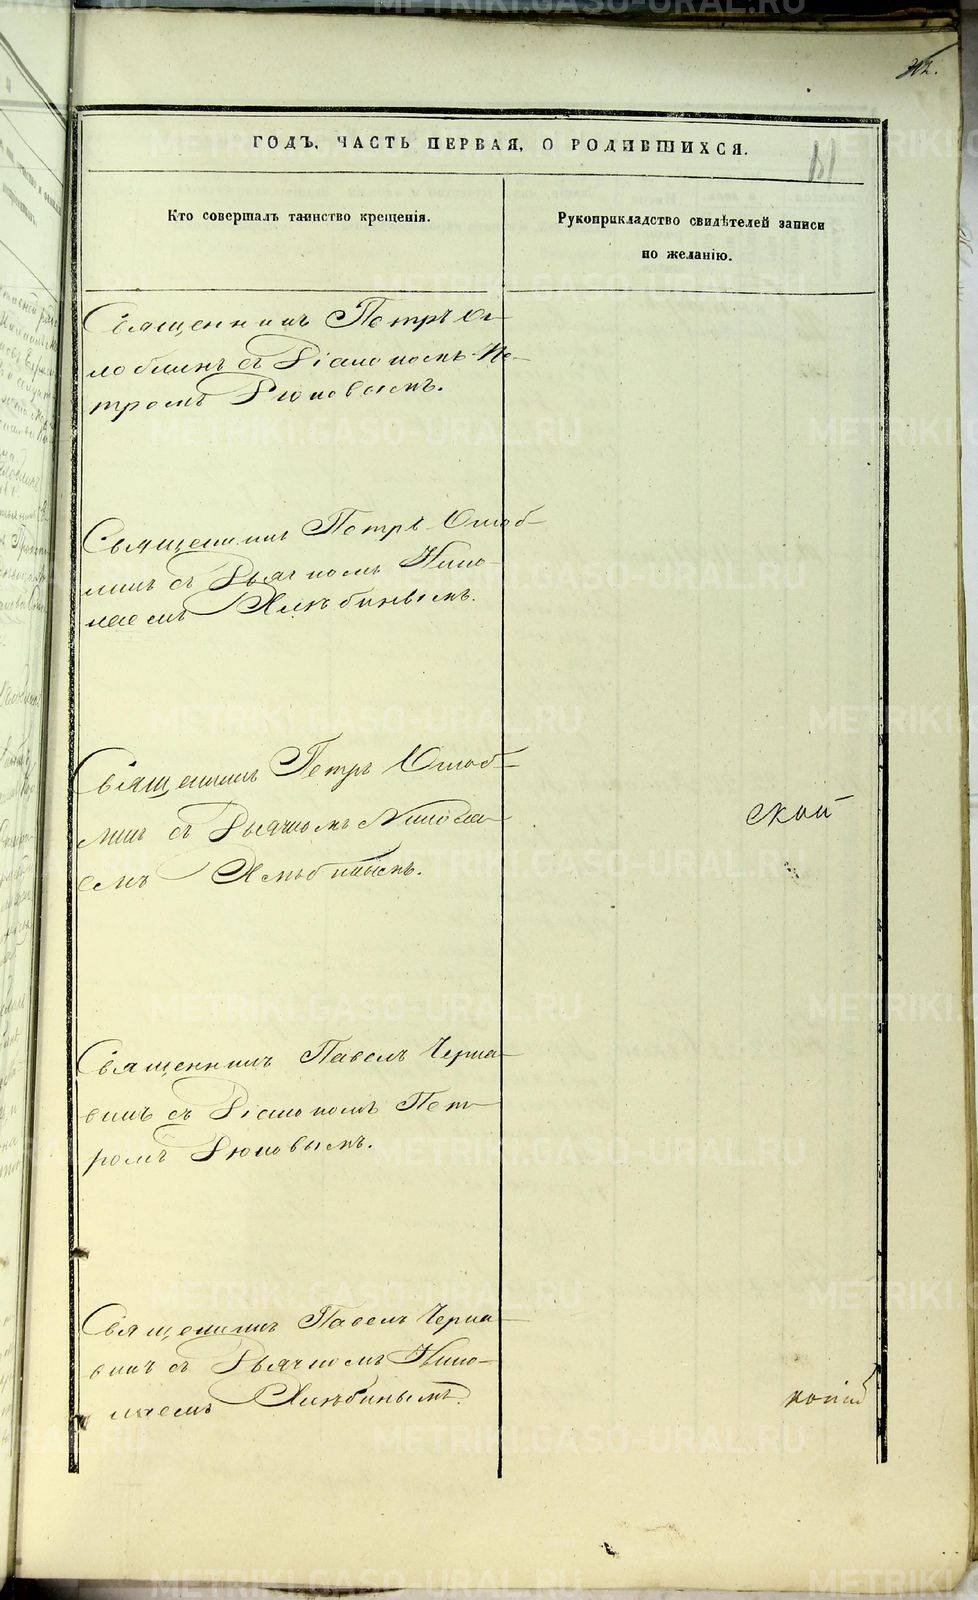 METRIKI.GASO-URAL.RU
ГОДЪ, ЧАСТЬ ПЕРВАЯ, О РОДИВШИХСЯ.
Кто совершалъ таинство крещенія.
Рукоприкладство свидѣтелей записи
по желанію.
Священникъ Петръ Ог-
лоблинъ съ Діакономъ Пе-
тромъ Дюковымъ.
Священникъ Петръ Оглоб-
линъ съ Дьячкомъ Нико-
лаемъ Хлѣбинымъ.
Священникъ Петръ Оглоб-
линъ съ Дьячкомъ Никола-
емъ Хлѣбинымъ.
Священникъ Павелъ Черна-
винъ съ Діакономъ Пет-
ромъ Дюковымъ.
Священникъ Павелъ Черна-
винъ съ Дьячкомъ Нико-
лаемъ Хлѣбинымъ.
ской